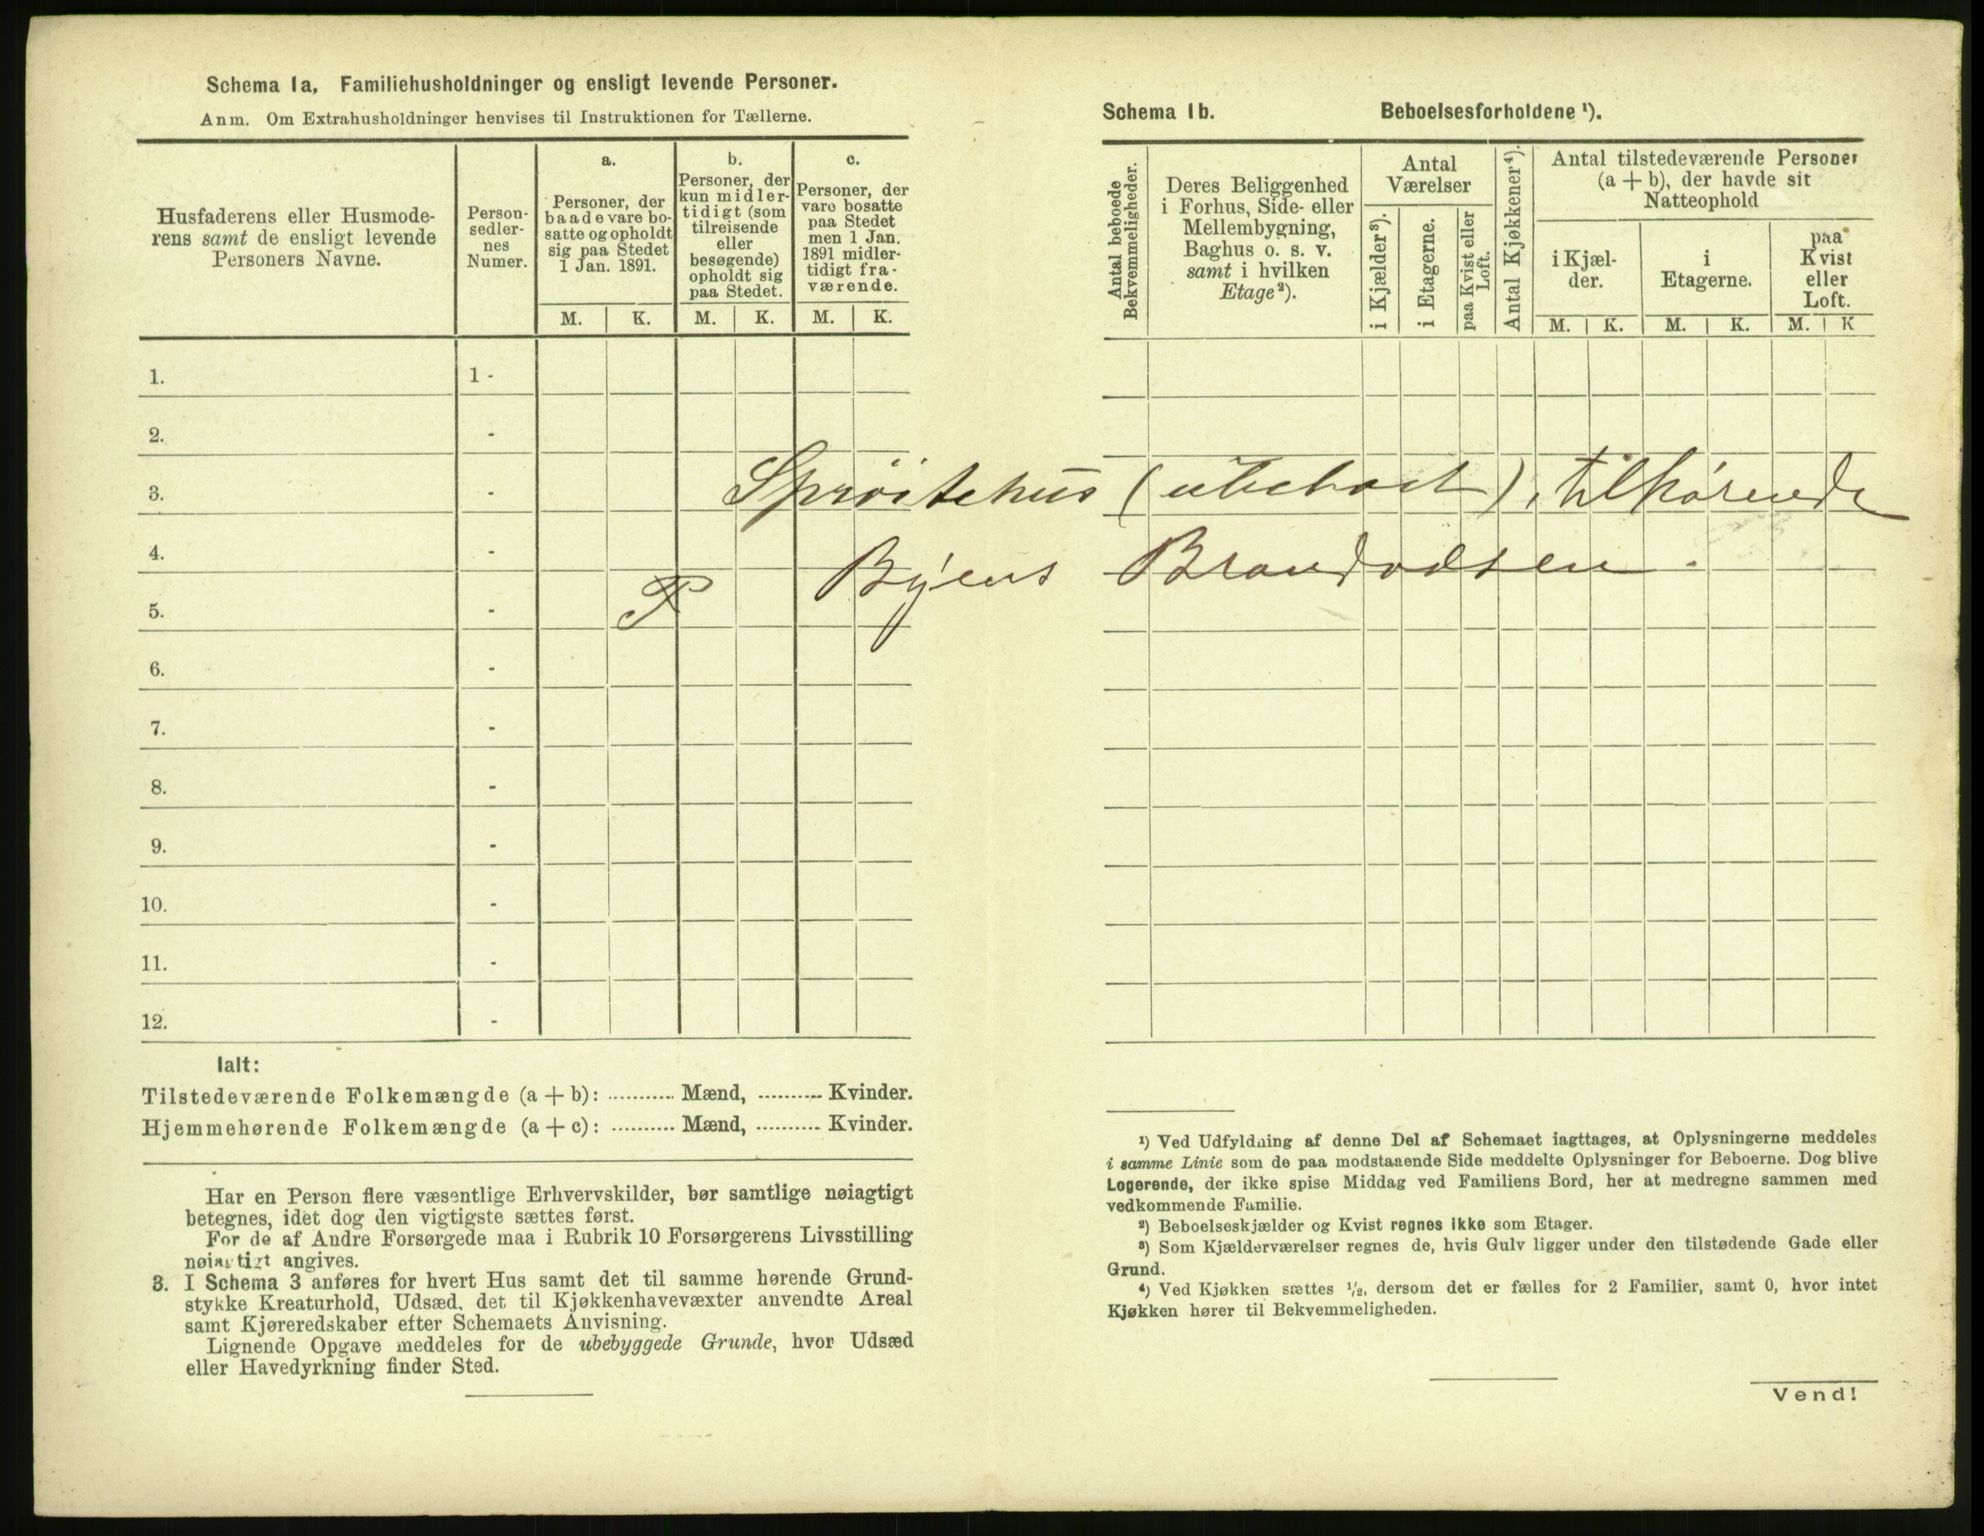 Schema 1a, Familiehusholdninger og ensligt levende Personer.
Anm. Om Extrahusholdninger henvises til Instruktionen for Tællerne.
Husfaderens eller Husmode-
rens samt de ensligt levende
Personers Navne.
Person-
sedler-
nes
Numer.
a.
Personer, der
baade vare bo-
satte og opholdt
sig paa Stedet
1 Jan. 1891.
b.
Personer, der
kun midler-
tidigt (som
tilreisende
eller
besøgende)
opholdt sig
paa Stedet.
c.
Personer, der
vare bosatte
paa Stedet
men 1 Jan.
1891 midler-
tidigt fra-
værende.
M. K. M. K. M. K.
1. 1 -
2. -
3. -
4. -
5. -
6. -
7. -
8. -
9. -
10. -
11. -
12. -
Ialt:
Tilstedeværende Folkemængde (a + b): ........... Mænd, ........... Kvinder.
Hjemmehørende Folkemængde (a + c): ........... Mænd, ........... Kvinder.
Har en Person flere væsentlige Erhvervskilder, bør samtlige nøiagtigt
betegnes, idet dog den vigtigste sættes først.
For de af Andre Forsørgede maa i Rubrik 10 Forsørgerens Livsstilling
nøiagtigt angives.
3. I Schema 3 anføres for hvert Hus samt det til samme hørende Grund-
stykke Kreaturhold, Udsæd, det til Kjøkkenhavevæxter anvendte Areal
samt Kjøreredskaber efter Schemaets Anvisning.
Lignende Opgave meddeles for de ubebyggede Grunde, hvor Udsæd
eller Havedyrkning finder Sted.
Schema 1b. Beboelsesforholdene ¹).
Antal beboede
Bekvemmeligheder.
Deres Beliggenhed
i Forhus, Side- eller
Mellembygning,
Baghus o. s. v.
samt i hvilken
Etage²).
Antal
Værelser
i Kjælder³).
i Etagerne.
paa Kvist eller
Loft.
Antal Kjøkkener⁴).
Antal tilstedeværende Personer
(a + b), der havde sit
Natteophold
i Kjæl-
der.
i
Etagerne.
paa
Kvist
eller
Loft.
M. K. M. K. M. K
Sprøitehus (ubeboet), tilhørende
Byens Brandvæsen.
¹) Ved Udfyldning af denne Del af Schemaet iagttages, at Oplysningerne meddeles
i samme Linie som de paa modstaaende Side meddelte Oplysninger for Beboerne. Dog blive
Logerende, der ikke spise Middag ved Familiens Bord, her at medregne sammen med
vedkommende Familie.
²) Beboelseskjælder og Kvist regnes ikke som Etager.
³) Som Kjælderværelser regnes de, hvis Gulv ligger under den tilstødende Gade eller
Grund.
⁴) Ved Kjøkken sættes ½, dersom det er fælles for 2 Familier, samt 0, hvor intet
Kjøkken hører til Bekvemmeligheden.
Vend!